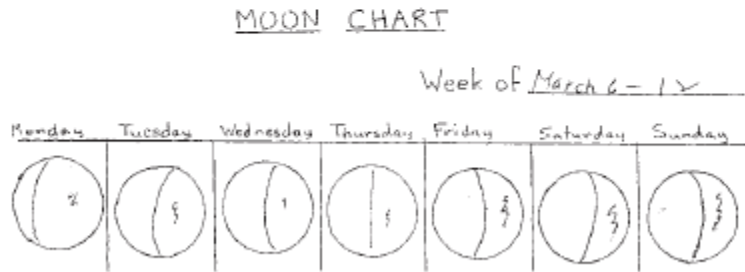 MOON CHART
Week of March 6 - 12
Monday Tuesday Wednesday Thursday Friday Saturday Sunday